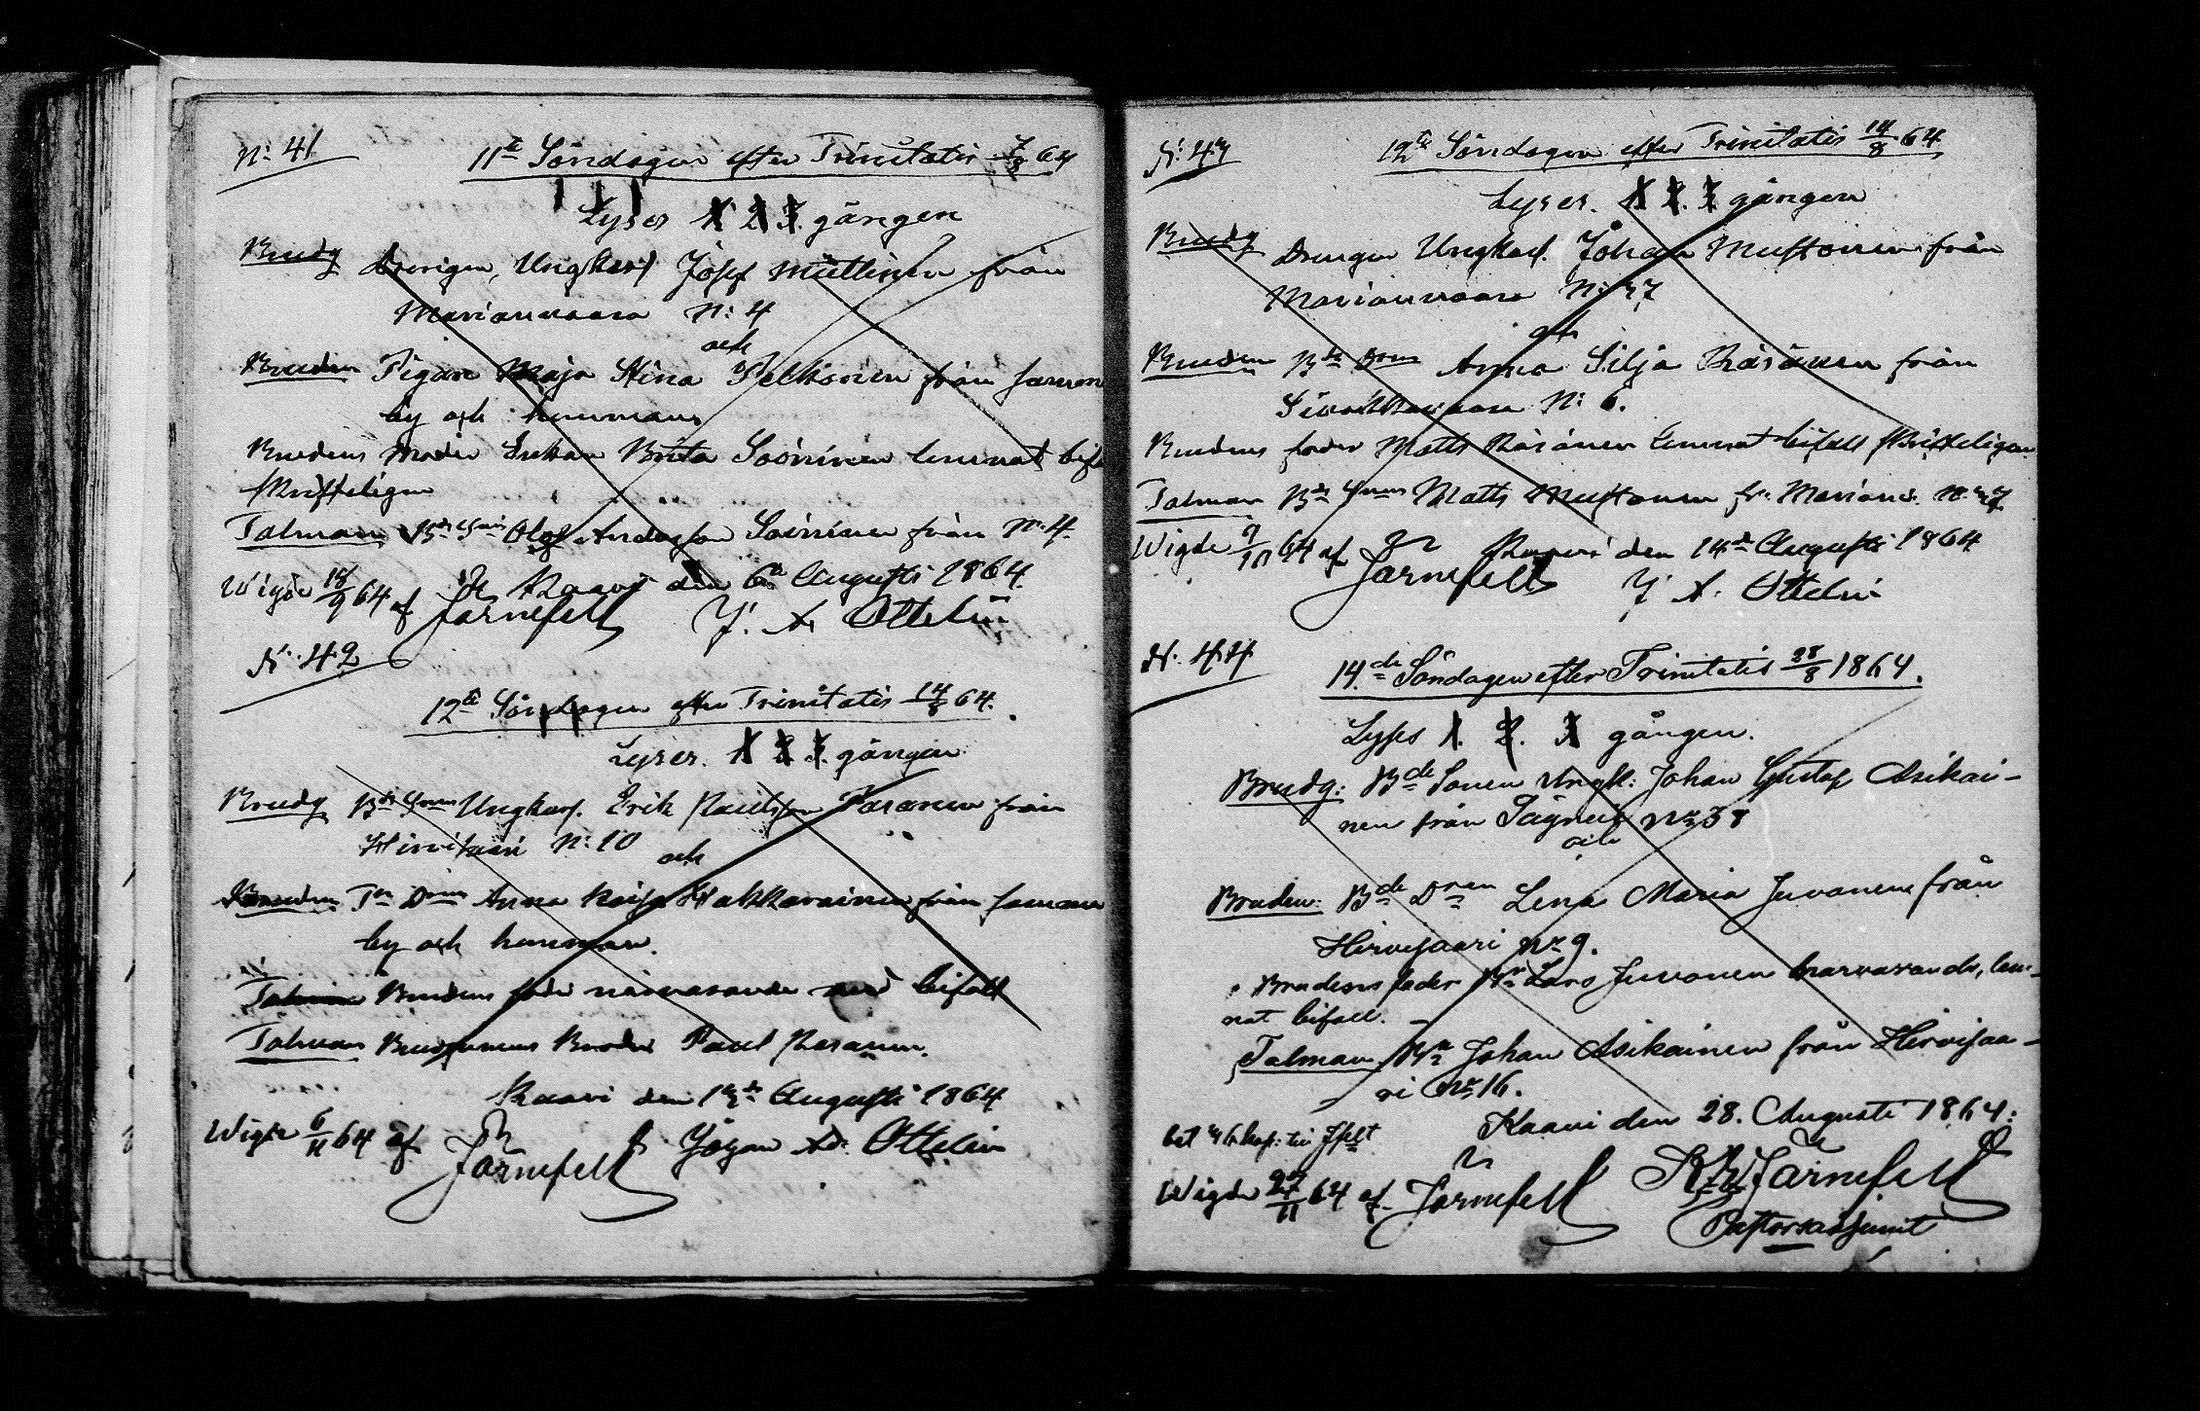 N: 41
11te Söndagen efter Trinitatis 7/8 64
Lyses 1 2 3. gången
Brudg Drengen, Ungkarl Josef Miettinen från
Marianvaara N: 4
och
Bruden Pigan Maja Stina Pelkonen från samma
by och hemman
Brudens Moder Enkan Brita Soininen lemnat bifall
skrifteligen
Talman Bde Sonen Olof Andersson Soininen från N: 4
Kaavi den 6te Augusti 1864
Wigde 18/9 64 af Järnefelt J. A. Ottelin
N: 42
12te Söndagen efter Trinitatis 14/8 64.
Lyses. 1 2 3. gången
Brudg Bde Sonen Ungkarl. Erik Paulsson Räsänen från
Hirvisaari N: 10 och
Bruden Anna Kaisa Hakkarainen från samma
by och hemman.
Talman Brudens fader närvarande med bifall
Talman Brudgumens Broder Paul Räsänen.
Kaavi den 13de Augusti 1864
Wigde 6/11 64 af Järnefelt Johan Ad. Ottelin
N: 43
12te Söndagen efter Trinitatis 14/8 64
Lyses. 1 2. 3 gången
Brudg Drengen Ungkarl. Johan Mustonen från
Marianvaara N: 37
och
Bruden Bde Dren Anna Silja Räsänen från
Siivikkovaara N: 6.
Brudens fader Matts Räsänen lemnat bifall skrifteligen
Talman Bde Sonen Matts Mustonen fr. Marianv. N: 37
Kaavi den 14de Augusti 1864
Wigde 9/10 64 af Järnefelt J. A. Ottelin
N: 44
14.de Söndagen efter Trinitatis 28/8 1864.
Lyses 1. 2. 3 gången.
Brudg: Bde Sonen Ungk: Johan Gustaf Asikai-
nen från Sägnef No 38
och
Bruden: Bde Dren Lena Maria Juvonen från
Hirvisaari No 9.
Brudens fader Bn Lars Juvonen närvarande, lem-
nat bifall.
Talman Bn Johan Asikainen från Hirvisaa-
ri No 16.
Kaavi den 28. Augusti 1864:
Wigde 27/11 64 af Järnefelt Järnefelt
Pastorsadjunkt